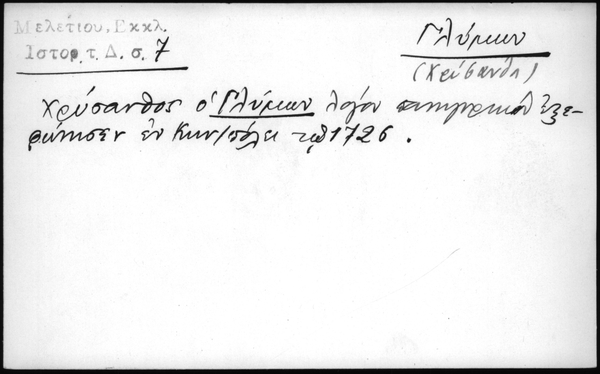 Μελετίου, Εκκλ.
Ιστορ. τ. Δ. σ. 7
Γλύμιων
(Χρύσανθ)
Χρύσανθος ὁ Γλύμιων λόγον
ἐν Κων/πόλει τῷ 1726 .